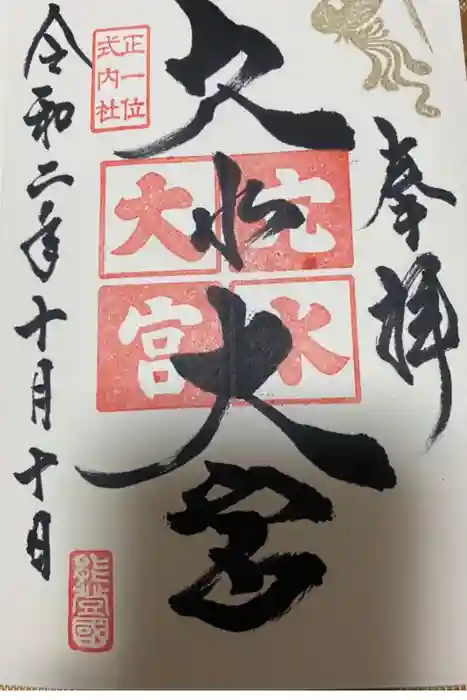 奉拝
穴水大宮
穴水
大宮
正一位
式内社
令和二年十月十日
能登國